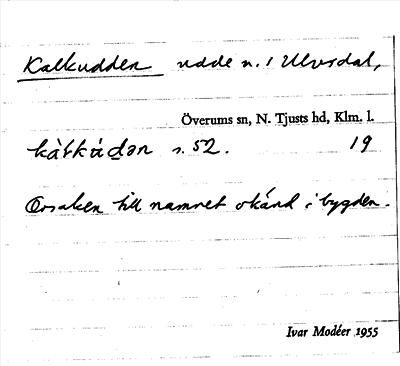 Kalkudden udde n. i Ulvsdal,
Överums sn, N. Tjusts hd, Klm. l.
kàlkùdən s. 52. 19
Orsaken till namnet okänd i bygden.
Ivar Modéer 1955